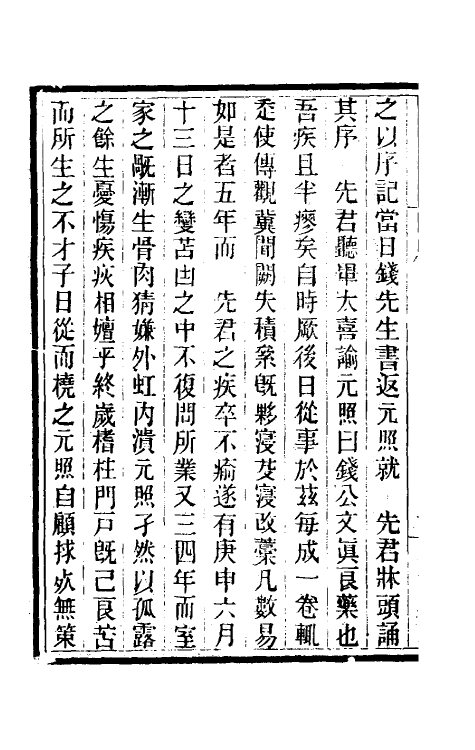 之以序記當日錢先生書返元照就　先君牀頭誦
其序　先君聽畢大喜諭元照曰錢公文眞良藥也
吾疾且半瘳矣自時厥後日從事於茲每成一卷輒
走使傳觀冀間闕失積案旣夥寖芟寖改藁凡數易
如是者五年而　先君之疾卒不痊遂有庚申六月
十三日之變苫甴之中不復問所業又三四年而室
家之毆漸生骨肉猜嫌外虹內潰元照孑然以孤露
之餘生憂傷疾疢相嬗乎終歲榰柱門戸旣已良苦
而所生之不才子日從而橈之元照自顧捄疚無策